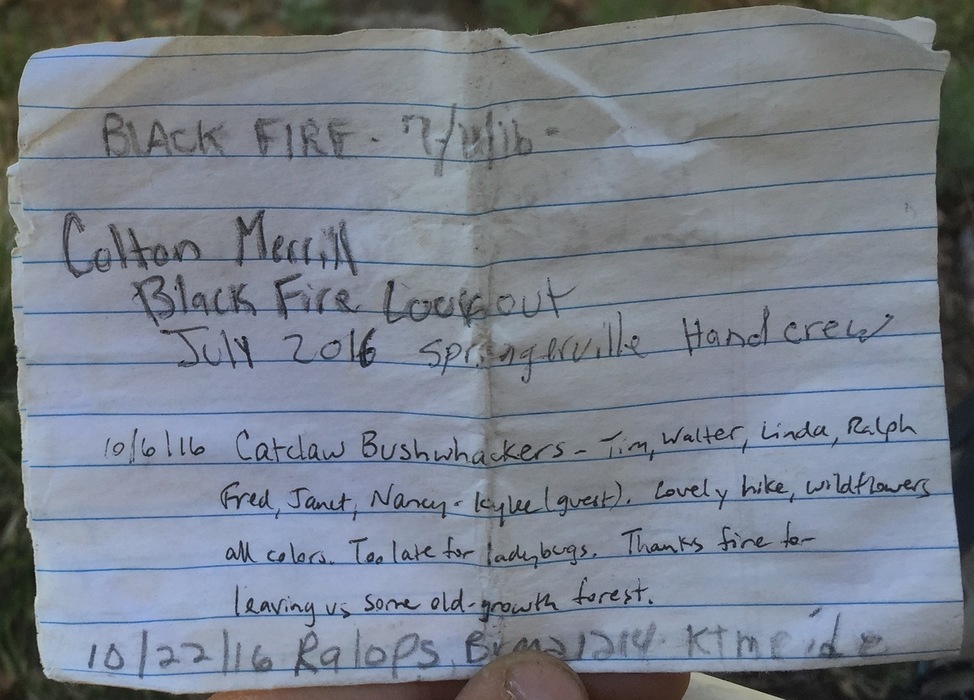 BLACK FIRE - 7/
Colton Merrill
Black Fire Lookout
July 2016 Springerville Handcrew
10/6/16 Catclaw Bushwhackers - Tim, Walter, Linda, Ralph
Fred, Janet, Nancy - Kylee (guest). Lovely hike, wildflowers
all colors. Too late for ladybugs. Thanks fire for
leaving us some old-growth forest.
10/22/16